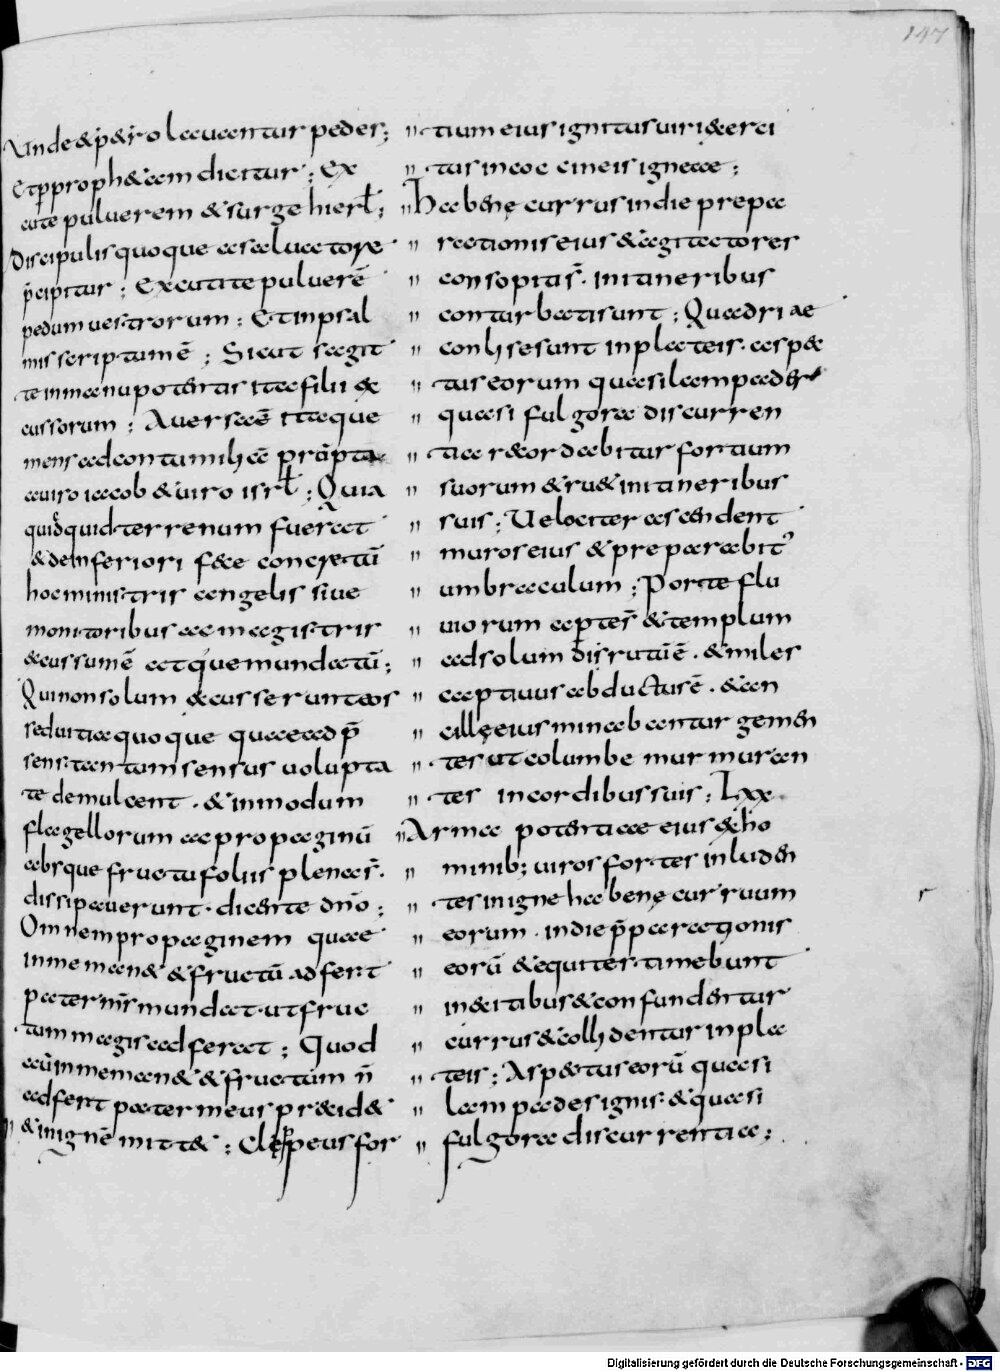 147
Unde & p&ro lauantur pedes;
Et p proph&am dicitur; Ex
cute puluerem & surge hierl̄;
Discipulis quoque a saluatore
p̄cipitur; Excutite puluerē
pedum uestrorum; Et in psal
mis scriptum ē; Sicut sagit
te in manu potentis ita filii ex
cussorum; Auersa ē itaque
mens ad contumiliā prērpta
a uiro iacob & uiro isrl̄; Quia
quidquid terrenum fuerat
& de inferiori fece concretū
hoc ministris angelis siue
monitoribus ac magistris
excussum ē atque mundatū;
Qui non solum excusserunt eos
sed uitia quoque quae ad p̄
sens tantum sensus uolupta
te demulcent. & in modum
flagellorum ac propaginū
absque fructu foliis plenas.
dissipauerunt. dicente dn̄o;
Omnem propaginem quae
in me man& & fructū adfert
pater mr̄s mundat. ut fruc
tum magis adferat; Quod
aū in me man& & fructum n̄
adfert pater meus praecid&
& in ignē mitt&; Clypeus for
tium eius ignitus uiri exerci
tus in coccineis igneae;
Habenę currus in die prepa
rationis eius & agitatores
consopiti s̄. in itineribus
conturbati sunt; Quadri ae
conlisę sunt in plateis. aspec
tus eorum quasi lampades
quasi fulgora discurren
tia recordabitur fortium
suorum & ru& in itineribus
suis; Uelociter ascendent
muros eius & preparabit̄
umbraculum; Porte flu
uiorum apertę s̄ & templum
ad solum dirutū ē. & miles
captiuus abductus ē. & an
cillę eius minabantur gemen
tes ut columbe murmuran
tes in cordibus suis; Lxx.
Arma potentiae eius ex ho
minib; uiros fortes inluden
tes in igne habenę curruum
eorum. in die p̄parationis
eorū & equites timebunt
in exitibus & confundentur
currus & collident in pla
teis; Aspectus eorū quasi
lampades ignis. & quasi
fulgora discurrentia;
Digitalisierung gefördert durch die Deutsche Forschungsgemeinschaft - DFG